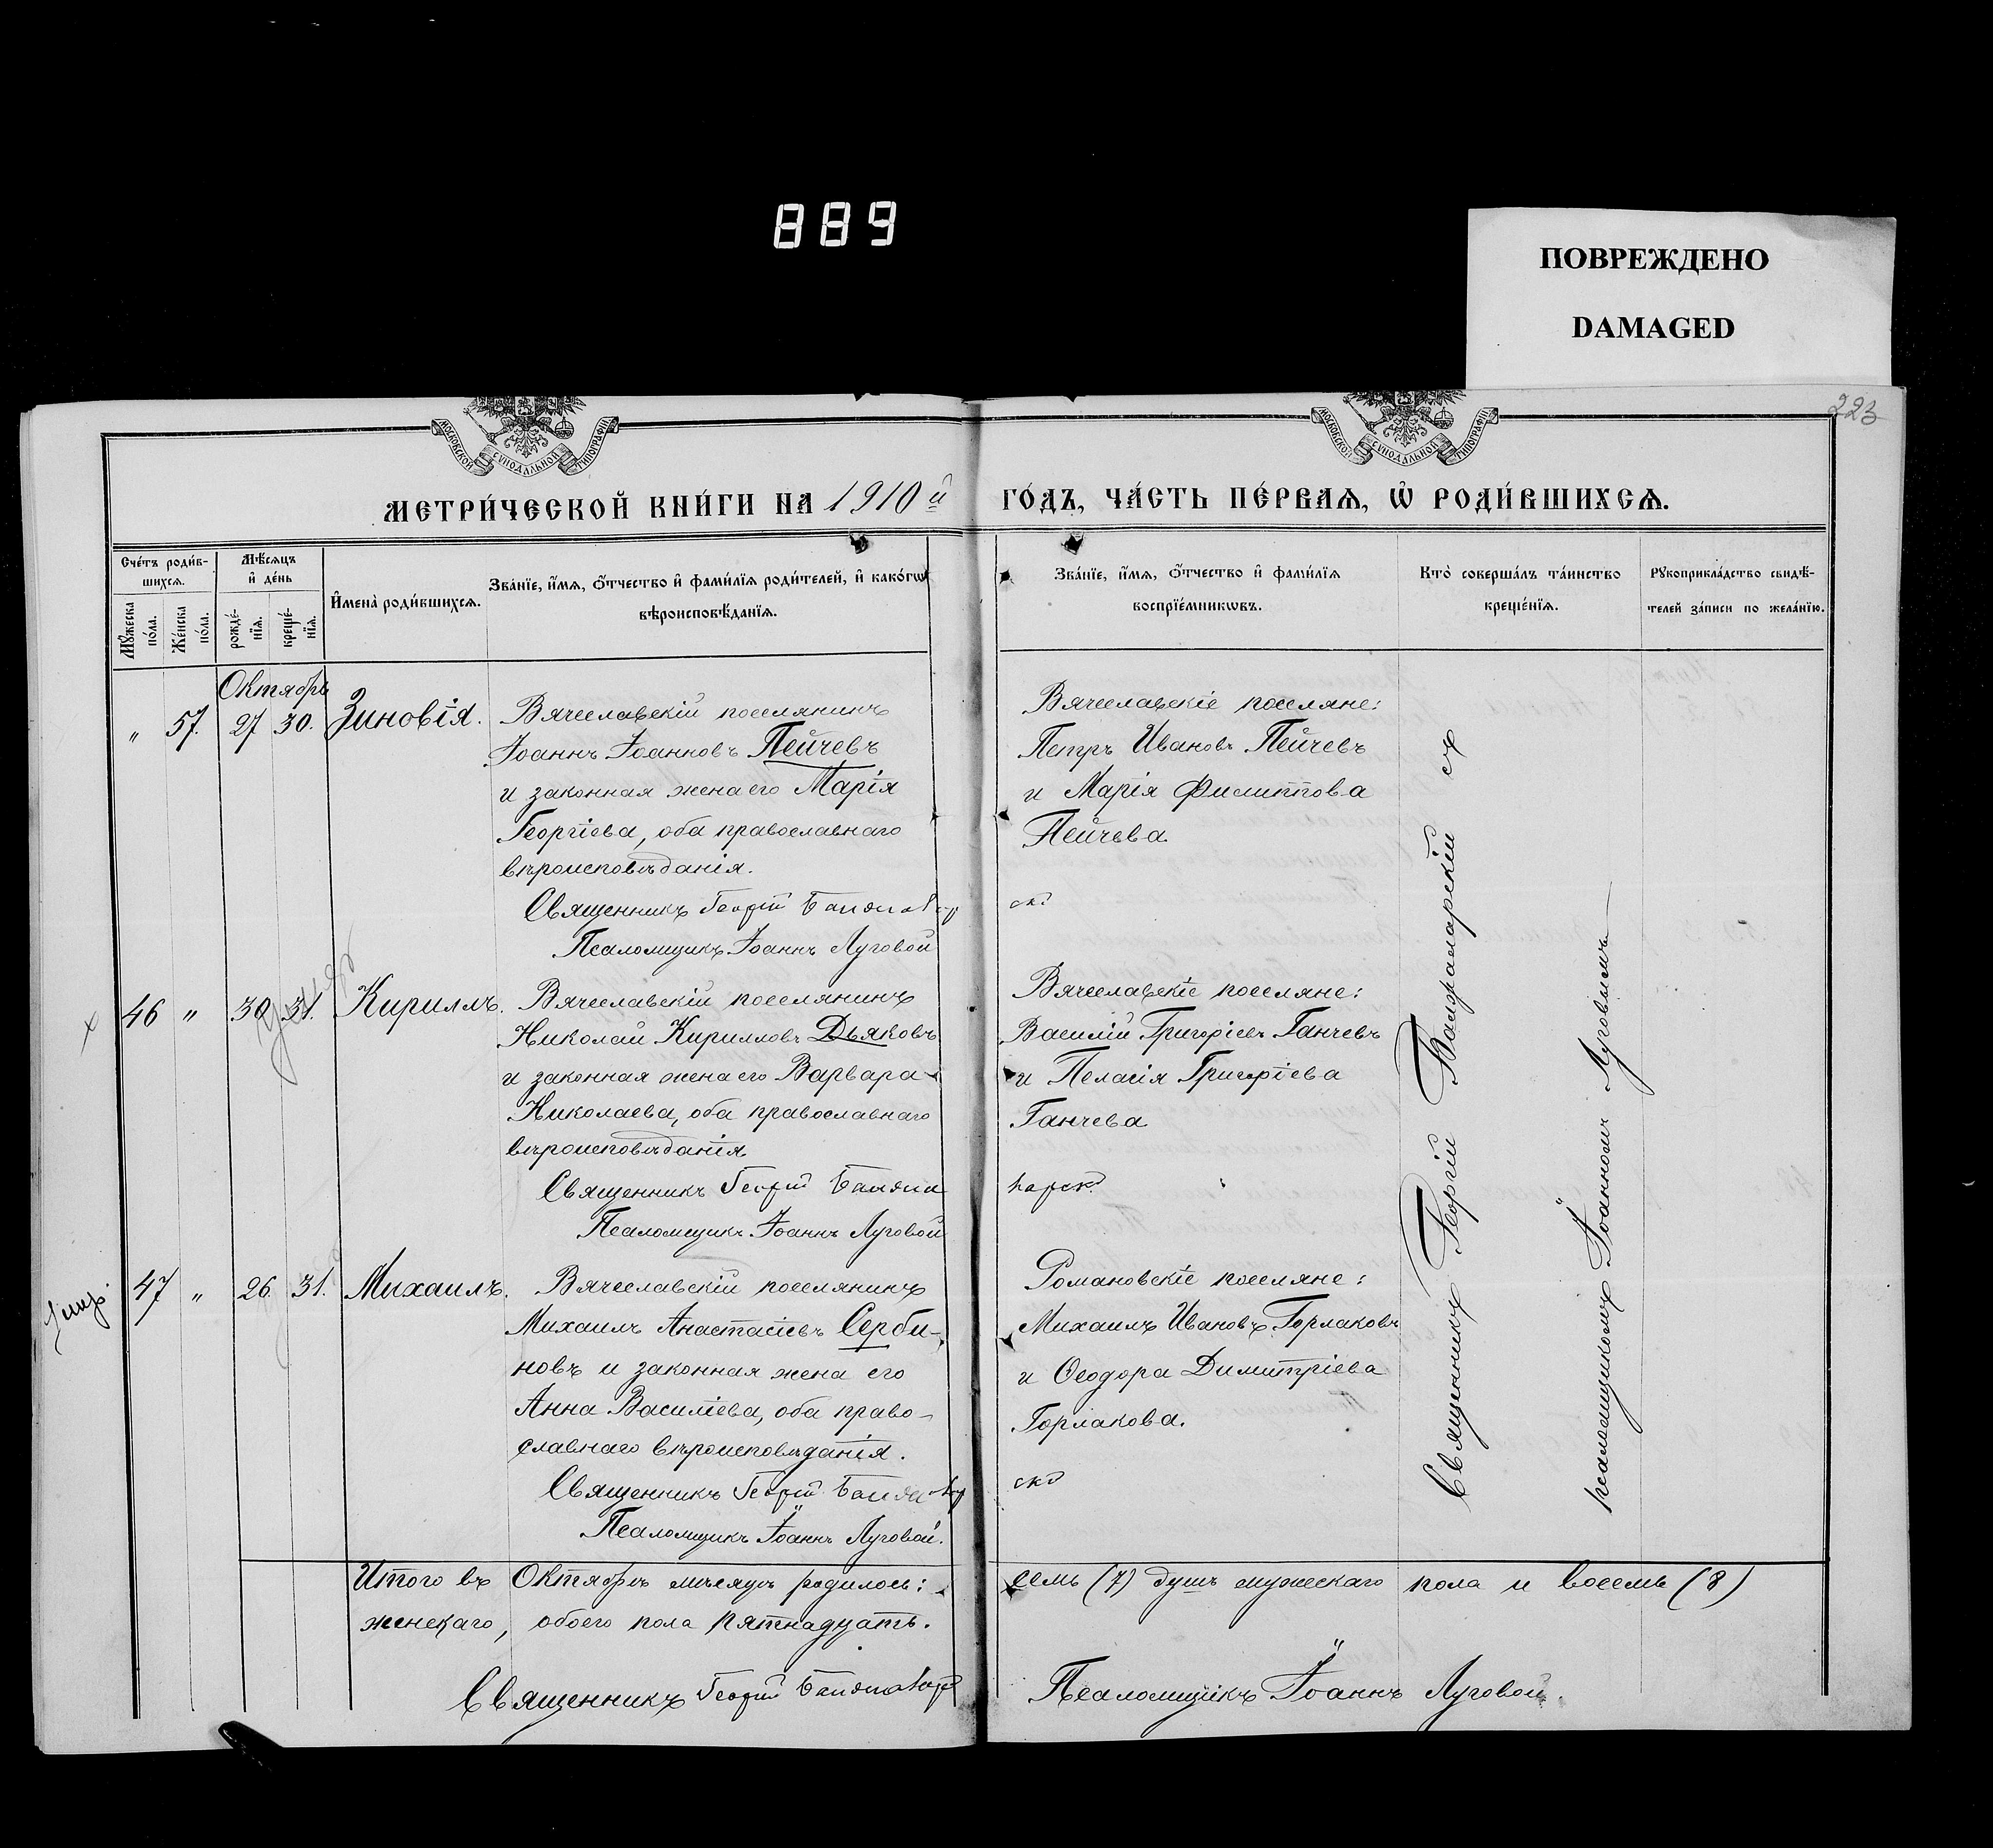 889
ПОВРЕЖДЕНО
DAMAGED
223
МОСКОВСКОЙ СУНОДАЛЬНОЙ ТИПОГРАФІИ
МОСКОВСКОЙ СУНОДАЛЬНОЙ ТИПОГРАФІИ
МЕТРИ́ЧЕСКОЙ КНИ́ГИ НА 1910й ГО́ДЪ, ЧА́СТЬ ПЕ́РВАѦ, Ѡ҆ РОДИ́ВШИХСѦ.
Сче́тъ роди́в-
шихсѧ.
Мꙋ́жеска по́ла.
Же́нска по́ла.
Мѣ́сѧцъ
и҆ де́нь
рожде́-
нїѧ.
креще́-
нїѧ.
И҆мена̀ роди́вшихсѧ.
Зва́нїе, и҆́мѧ, ѻ҆́тчество и҆ фами́лїѧ роди́телей, и҆ како́гѡ
вѣроисповѣ́данїѧ.
Зва́нїе, и҆́мѧ, ѻ҆́тчество и҆ фами́лїѧ
воспрїе́мникѡвъ.
Кто̀ соверша́лъ та́инство
креще́нїѧ.
Рꙋкоприкла́дство свидѣ́-
телей за́писи по жела́нїю.
Октябрь
" 57. 27 30. Зиновія.
Вячеславскій поселянинъ
Іоаннъ Іоанновъ Пейчевъ
и законная жена его Марія
Георгіева, оба православнаго
вѣроисповѣданія.
Священникъ Георгій Бандажевскій
Псаломщикъ Іоаннъ Луговой
Вячеславскіе поселяне:
Петръ Ивановъ Пейчевъ
и Марія Филиппова
Пейчева
46 " 30 31. Кириллъ.
Вячеславскій поселянинъ
Николай Кирилловъ Дьяковъ
и законная жена его Варвара
Николаева, оба православнаго
вѣроисповѣданія
Священникъ Георгій
Псаломщикъ Іоаннъ Луговой
Вячеславскіе поселяне:
Василій Григорьевъ Ганчевъ
и Пелагія Григорьева
Ганчева
47 " 26 31. Михаилъ.
Вячеславскій поселянинъ
Михаилъ Анастасіевъ Серби-
новъ и законная жена его
Анна Василіева, оба право-
славнаго вѣроисповѣданія.
Священникъ Георгій
Псаломщикъ Іоаннъ Луговой.
Романовскіе поселяне:
Михаилъ Ивановъ Горлаковъ
и Ѳеодора Димитріева
Горлакова.
Священникъ Георгій съ
псаломщикомъ Іоанномъ Луговымъ
Итого въ Октябрѣ мѣсяцѣ родилось: семь (7) душъ мужескаго пола и восемь (8)
женскаго, обоего пола пятнадцать.
Священникъ Георгій
Псаломщикъ Іоаннъ Луговой.